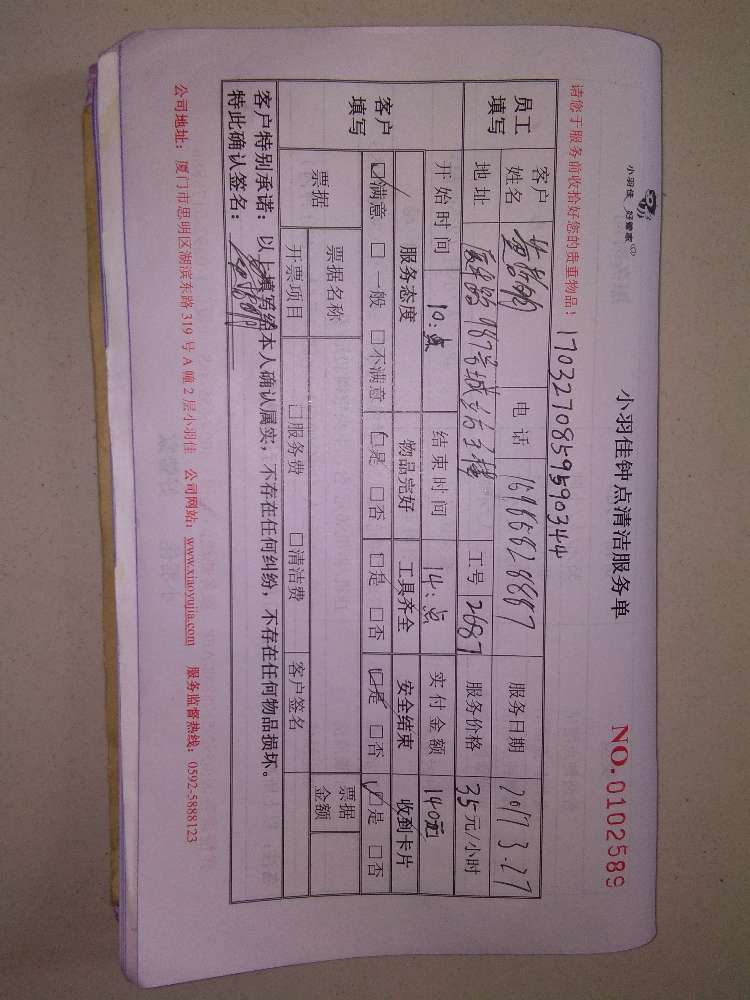 小羽佳 好管家
小羽佳钟点清洁服务单
NO. 0102589
请您于服务前收拾好您的贵重物品!
170327085959590344
员工填写 客户姓名 电话 服务日期 2017 3.27
地址 987 工号 2687 服务价格 35元/小时
开始时间 10:点 结束时间 14:点 实付金额 140元
客户填写 服务态度 物品完好 工具齐全 安全结束 收到卡片
☑满意 □一般 □不满意 ☑是 □否 ☑是 □否 ☑是 □否 ☑是 □否
票据 票据名称 票据金额
开票项目 □服务费 □清洁费 客户签名
客户特别承诺:以上填写经本人确认属实,不存在任何纠纷,不存在任何物品损坏。
特此确认签名:
公司地址:厦门市思明区湖滨东路 319 号 A 幢 2 层小羽佳 公司网站:www.xiaoyujia.com 服务监督热线:0592-5888123